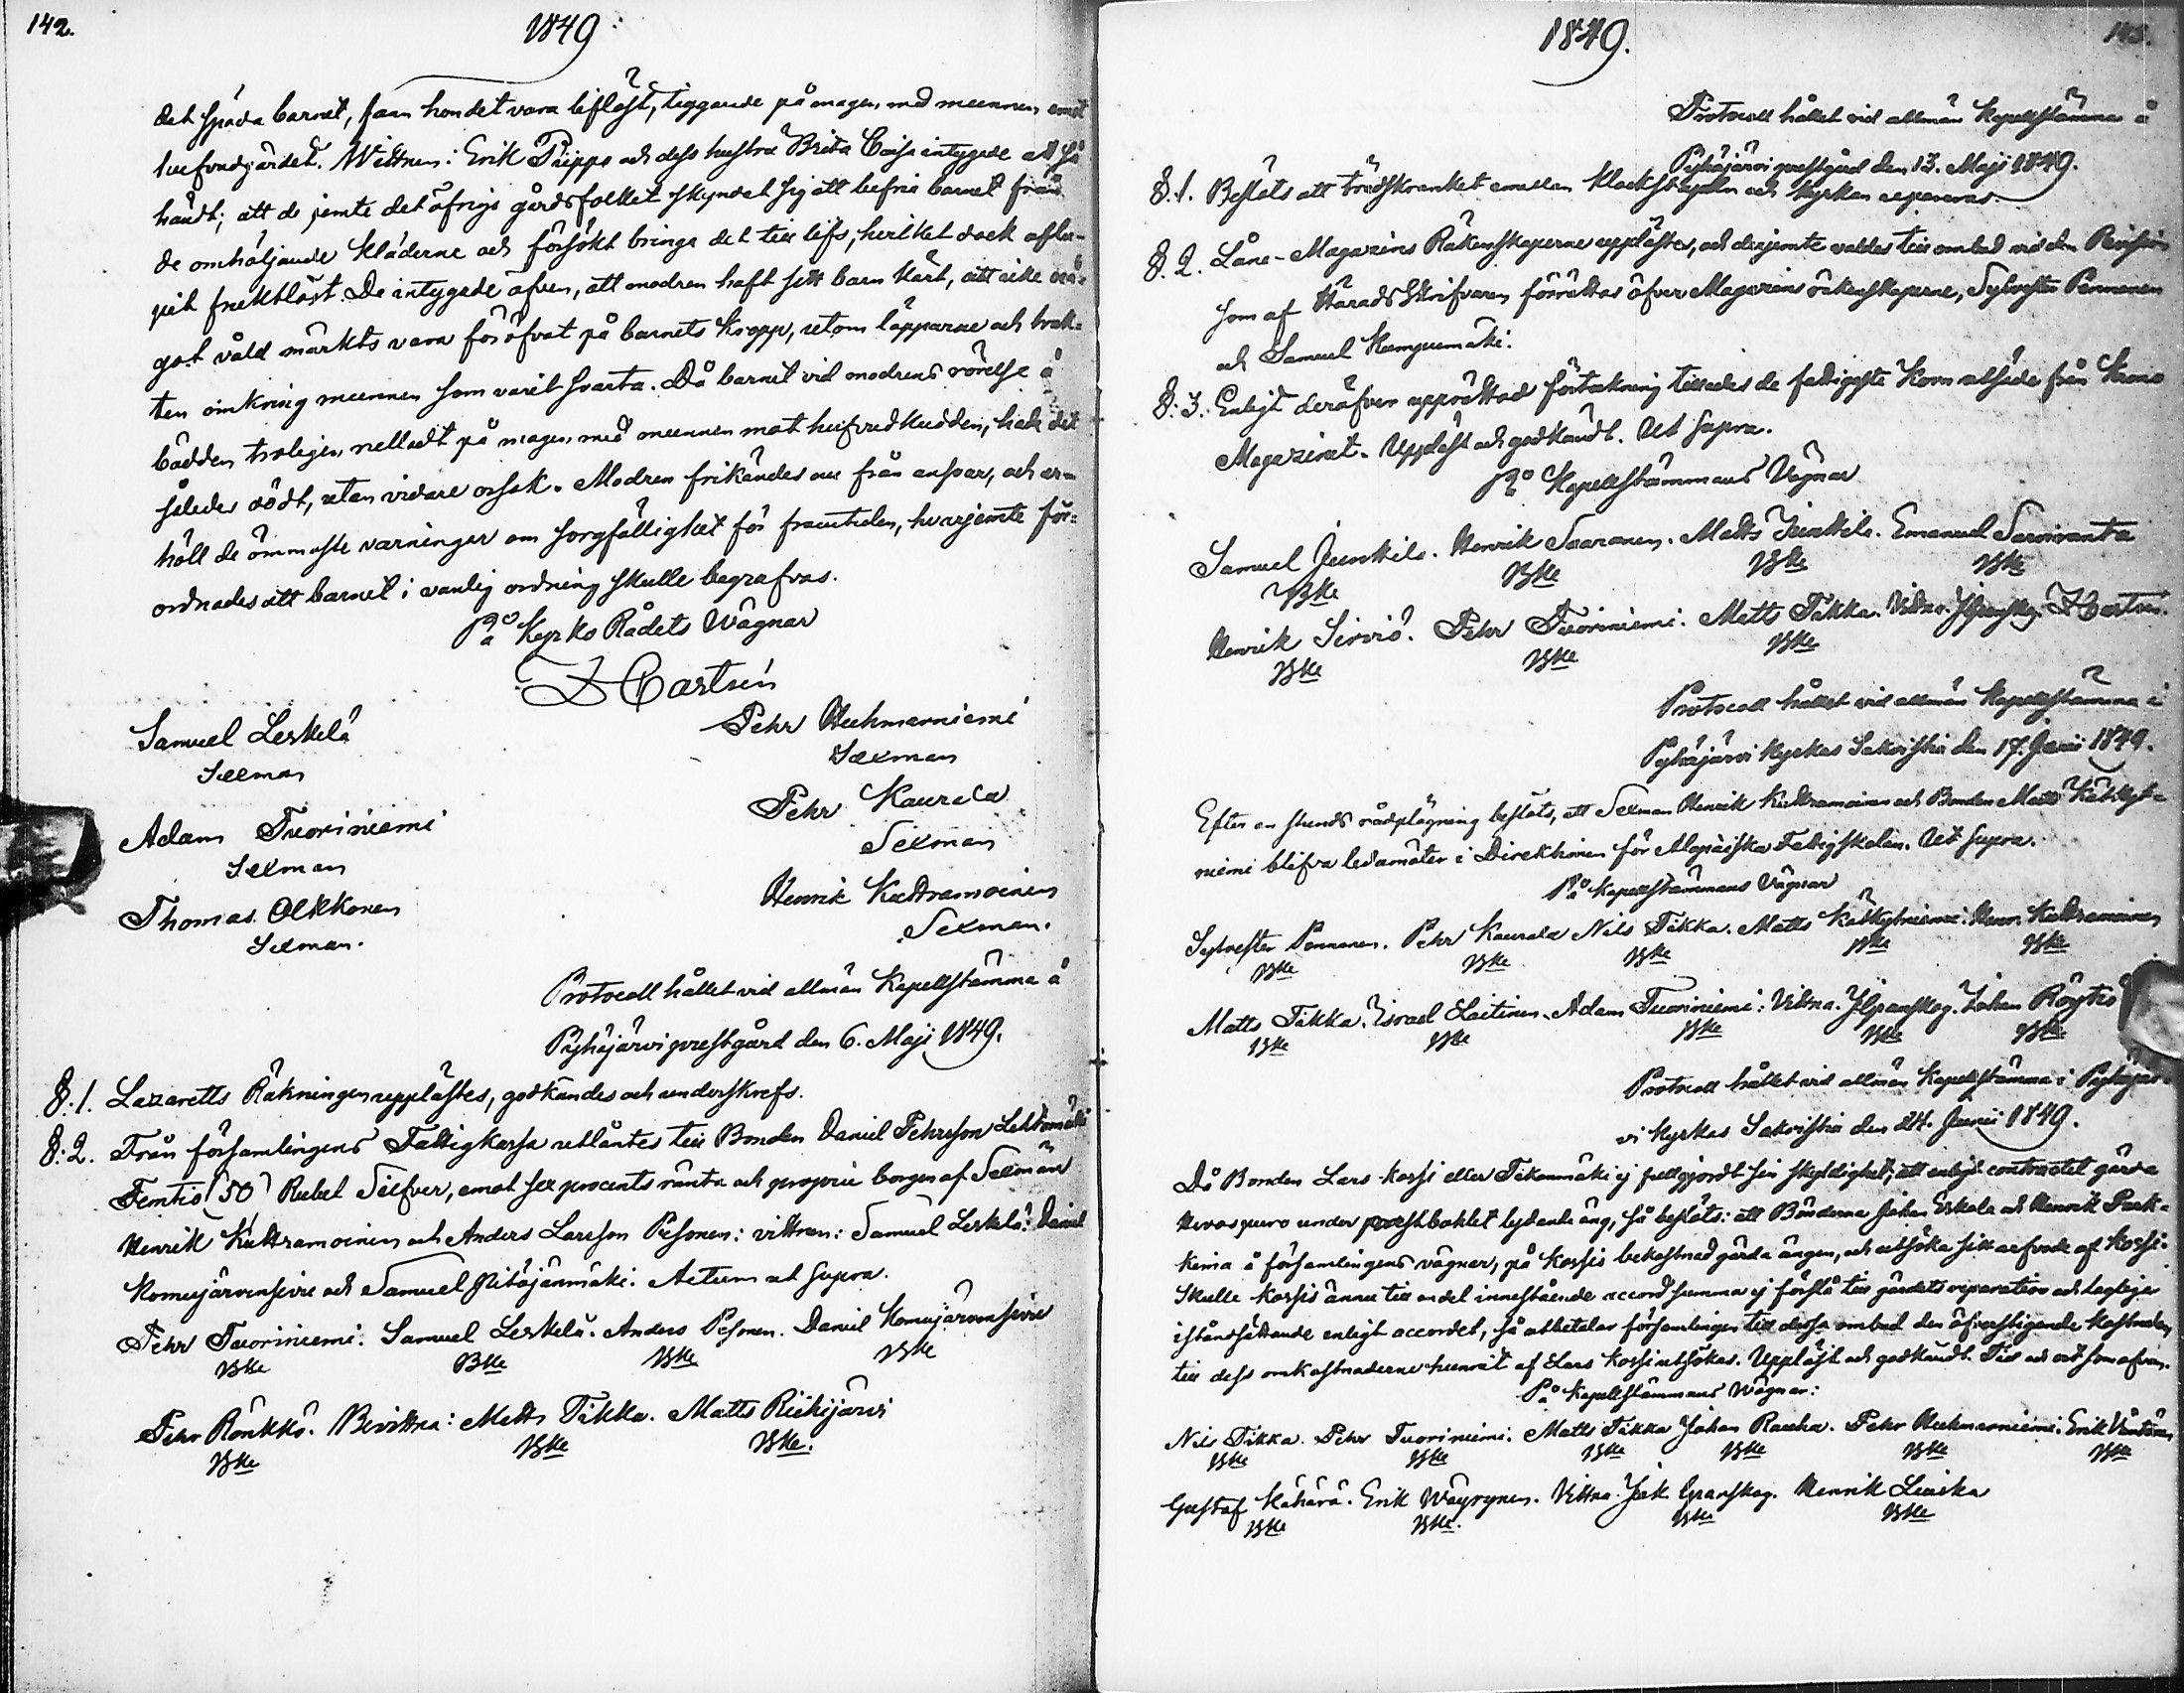 142.
1849
det späda barnet, fann hon det vara liflöst, liggande på magen, med munnen emot
hufvudgärdet. Wittnen: Erik Piippo och dess hustru Brita Caisa intygade att så
händt; att de jemte det öfriga gårdsfolket skyndat sig att befria barnet från
de omhöljande kläderne och försökt bringa det till lifs, hvilket dock aflu-
pit fruktlöst. De intygade äfven, att modren haft sitt barn kärt, att icke nå-
got våld märkts vara föröfvat på barnets kropp, utom läpparne och trak-
ten omkring munnen som varit svarta. Då barnet vid modrens rörelse å
bädden troligen velladt på magen, med munnen mot hufvudkudden, hade det
således dödt, utan vidare orsak. Modren frikändes nu från ansvar, och er-
höll de ömmaste varningar om sorgfällighet för framtiden, hvarjemte för-
ordnades att barnet i vanlig ordning skulle begrafvas.
På Kyrko Rådets Wägnar
Z Castrén
Samuel Leskelä
Pehr Huhmarniemi
Sexman
Sexman
Adam Tuoriniemi
Pehr Kaurala
Sexman
Sexman
Thomas Olkkonen
Henrik Kuttramoinen
Sexman.
Sexman.
Protocoll hållet vid allmän Kapellstämma å
Pyhäjärvi prestgård den 6. Maji 1849.
§. 1. Lazaretts Räkningen upplästes, godkändes och underskrefs.
§. 2. Från församlingens Fattigkassa utlåntes till Bonden Daniel Pehrsson Lehtomäki
Femtio (50) Rubel Silfver, emot sex procents ränta och proprie borgen af Sexman
Henrik Kuttramoinen och Anders Larsson Pesonen: vittnen: Samuel Leskelä. Daniel
Komujärvensivu och Samuel Pitäjänmäki. Actum ut supra.
Pehr Tuoriniemi. Samuel Leskelä. Anders Pesonen. Daniel Komujärvensivu
Bke Bke Bke Bke
Pehr Rönkkö. Bevittna: Matts Tikka. Matts Riihijärvi
Bke Bke Bke.
1849.
143.
Protocoll hållet vid allmän Kapellstämma å
Pyhäjärvi prestgård den 13. Maji 1849.
§. 1. Beslöts att trädskranket emellan Klockstapeln och Kyrkan repareras.
§. 2. Låne-Magazins Räkenskaperne upplästes, och derjemte valdes till ombud vid den Revision
som af Härads Skrifvaren förrättas öfver Magazins räkenskaperne, Sylvester Pennanen
och Samuel Kumpumäki.
§. 3. Enligt deröfver upprättad förteckning tillades de fattigste Korn utsäde från Krono
Magazinet. Uppläst och godkändt. Ut supra.
På Kapellstämmans Vägnar
Samuel Junttila. Henrik Saaranen. Matts Junttila. Emanuel Sarviranta
Bke Bke Bke Bke
Henrik Sirviö. Pehr Tuoriniemi. Matts Tikka. Z Castrén.
Bke Bke Bke
Protocoll hållet vid allmän Kapellstämma i
Pyhäjärvi Kyrkas Sakristia den 17. Junii 1849.
Efter en stunds rådplägning beslöts, att Sexman Henrik Kuttramoinen och Bonden Matts Kätkyt-
niemi blifva ledamöter i Direktionen för Fattigskolan. Ut supra.
På Kapellstämmans Vägnar
Sylvester Pennanen. Pehr Kaurala Nils Tikka. Matts Kätkytniemi. Henr. Kuttramoinen
Bke Bke Bke Bke Bke
Matts Tikka. Israel Laitinen. Adam Tuoriniemi: Vittna. Johan Röytiö
Bke Bke Bke Bke Bke
Protocoll hållet vid allmän Kapellstämma i Pyhäjär-
vi Kyrkas Sakristia den 24. Junii 1849.
Då Bonden Lars Korsi eller Tikanmäki ej fullgjordt sin skyldighet, att enligt contractet gärda
Kirvespuro under prestbohlet lydande äng, så beslöts: att Bönderna Johan Eskola och Henrik Park-
kima å församlingens vägnar, på Korsis bekostnad gärda ängen, och utsöka sitt arfvode af Korsi.
Skulle Korsis ännu till en del innestående accordsumma ej förslå till gärdets reparation och laglige
iståndsättande enligt accordet, så utbetalar församlingen till dessa ombud den öfverstigande kostnaden,
till dess omkostnaderne hunnit af Lars Korsi utsökas. Uppläst och godkändt. Tid och ort som ofvan.
På Kapellstämmans Wägnar:
Nils Tikka. Pehr Tuoriniemi. Matts Tikka Johan Rauha. Pehr Huhmarniemi. Erik Väntänen
Bke Bke Bke Bke Bke Bke
Gustaf Kähärä. Erik Wäyrynen. Vittna. Jak. Granskog. Henrik Liuska
Bke Bke. Bke Bke